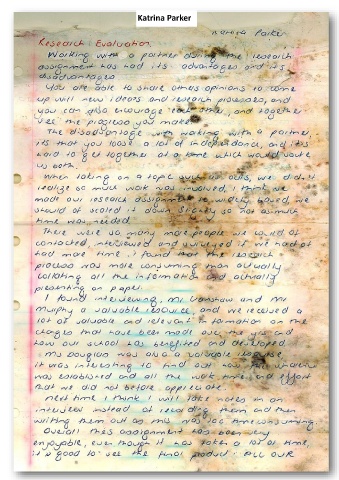 Katrina Parker
Katrina Parker
Research Evaluation
Working with a partner during the research
assignment has had its advantages and its
disadvantages
You are able to share others opinions to come
up with new ideas and research processes, and
you can also encourage each other, and together
see the progress you make
The disadvantage with working with a partner,
its that you loose a lot of independance, and its
hard to get together at a time which would suite
us both.
When taking on a topic such as ours, we didn't
realize so much work was involved, I think we
made our research assignment to widely based, we
should of scaled it down slightly so not as much
time was needed.
There were so many more people we could of
contacted, interviewed and surveyed if we had of
had more time, I found that the research
process was more consuming than actually
collating all the information and actually
presenting on paper.
I found interviewing, Mr and Mr
Murphy a valuable resource, and we received a
lot of valuable and relevant information on the
changes that have been made over the years and
how our school has benefited and developed.
Ms Douglas was also a valuable
it was interesting to find out how
was established and all the work time and effort
that we did not before appreciate.
Next time I think I will take notes in an
interview instead of recording them and then
writing them out as this was too time consuming.
Overall this assignment has been very
enjoyable, even though it has taken a lot of time,
it's good to see the final product: ALL OUR